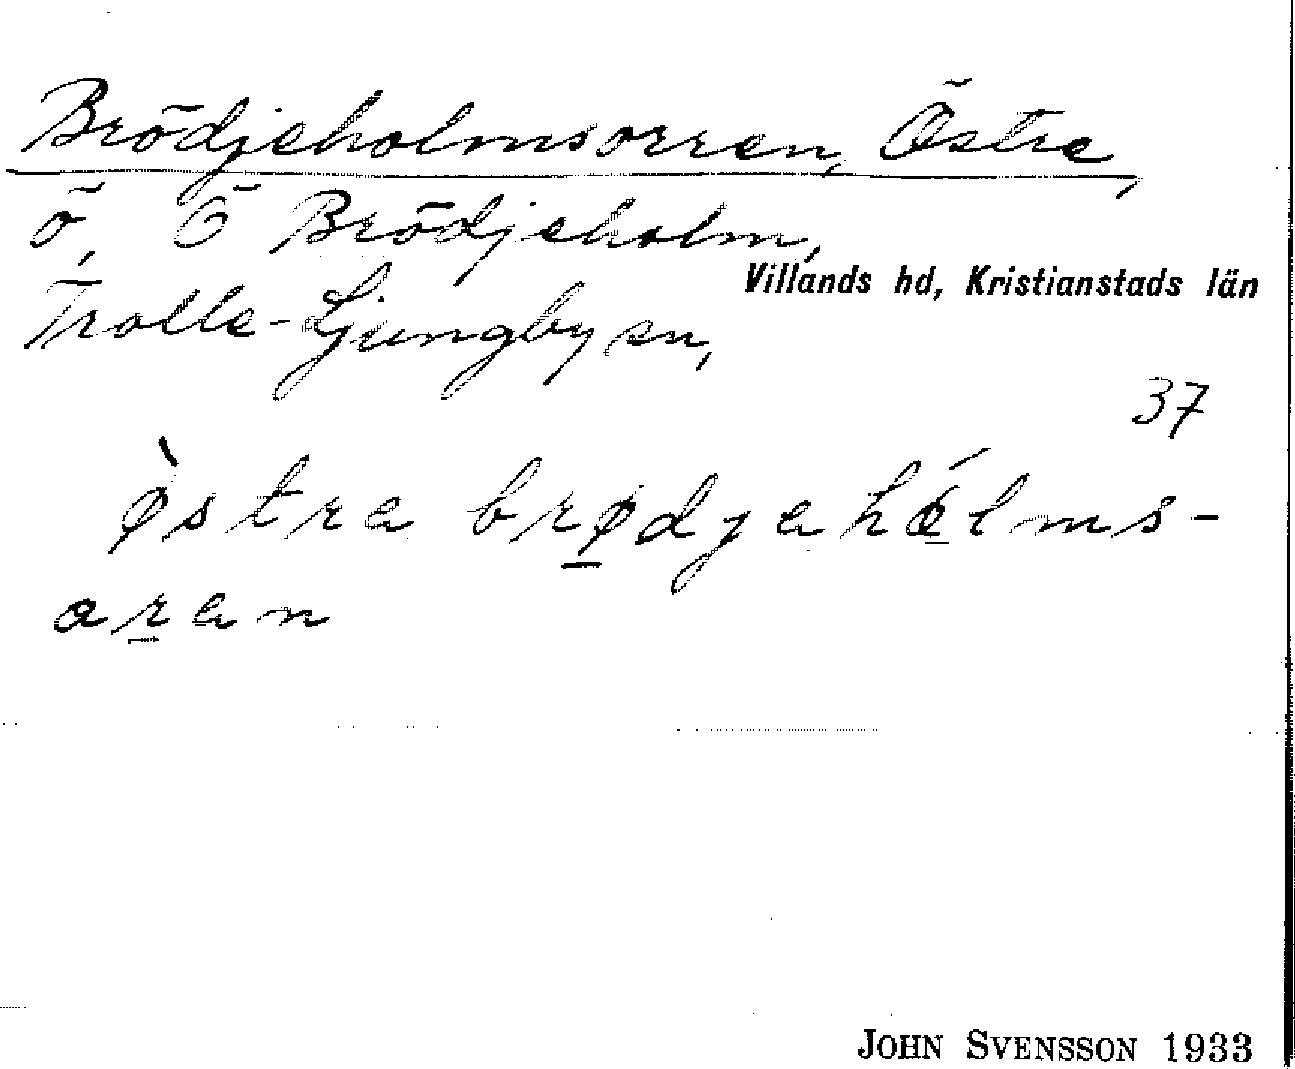 Brödjeholmsorren, Östre,
ö, Ö Brödjeholm,
Villands hd, Kristianstads län
Trolle-Ljungby sn,
37
òstra brø̠djahó̠lms-
or̠an
JOHN SVENSSON 1933